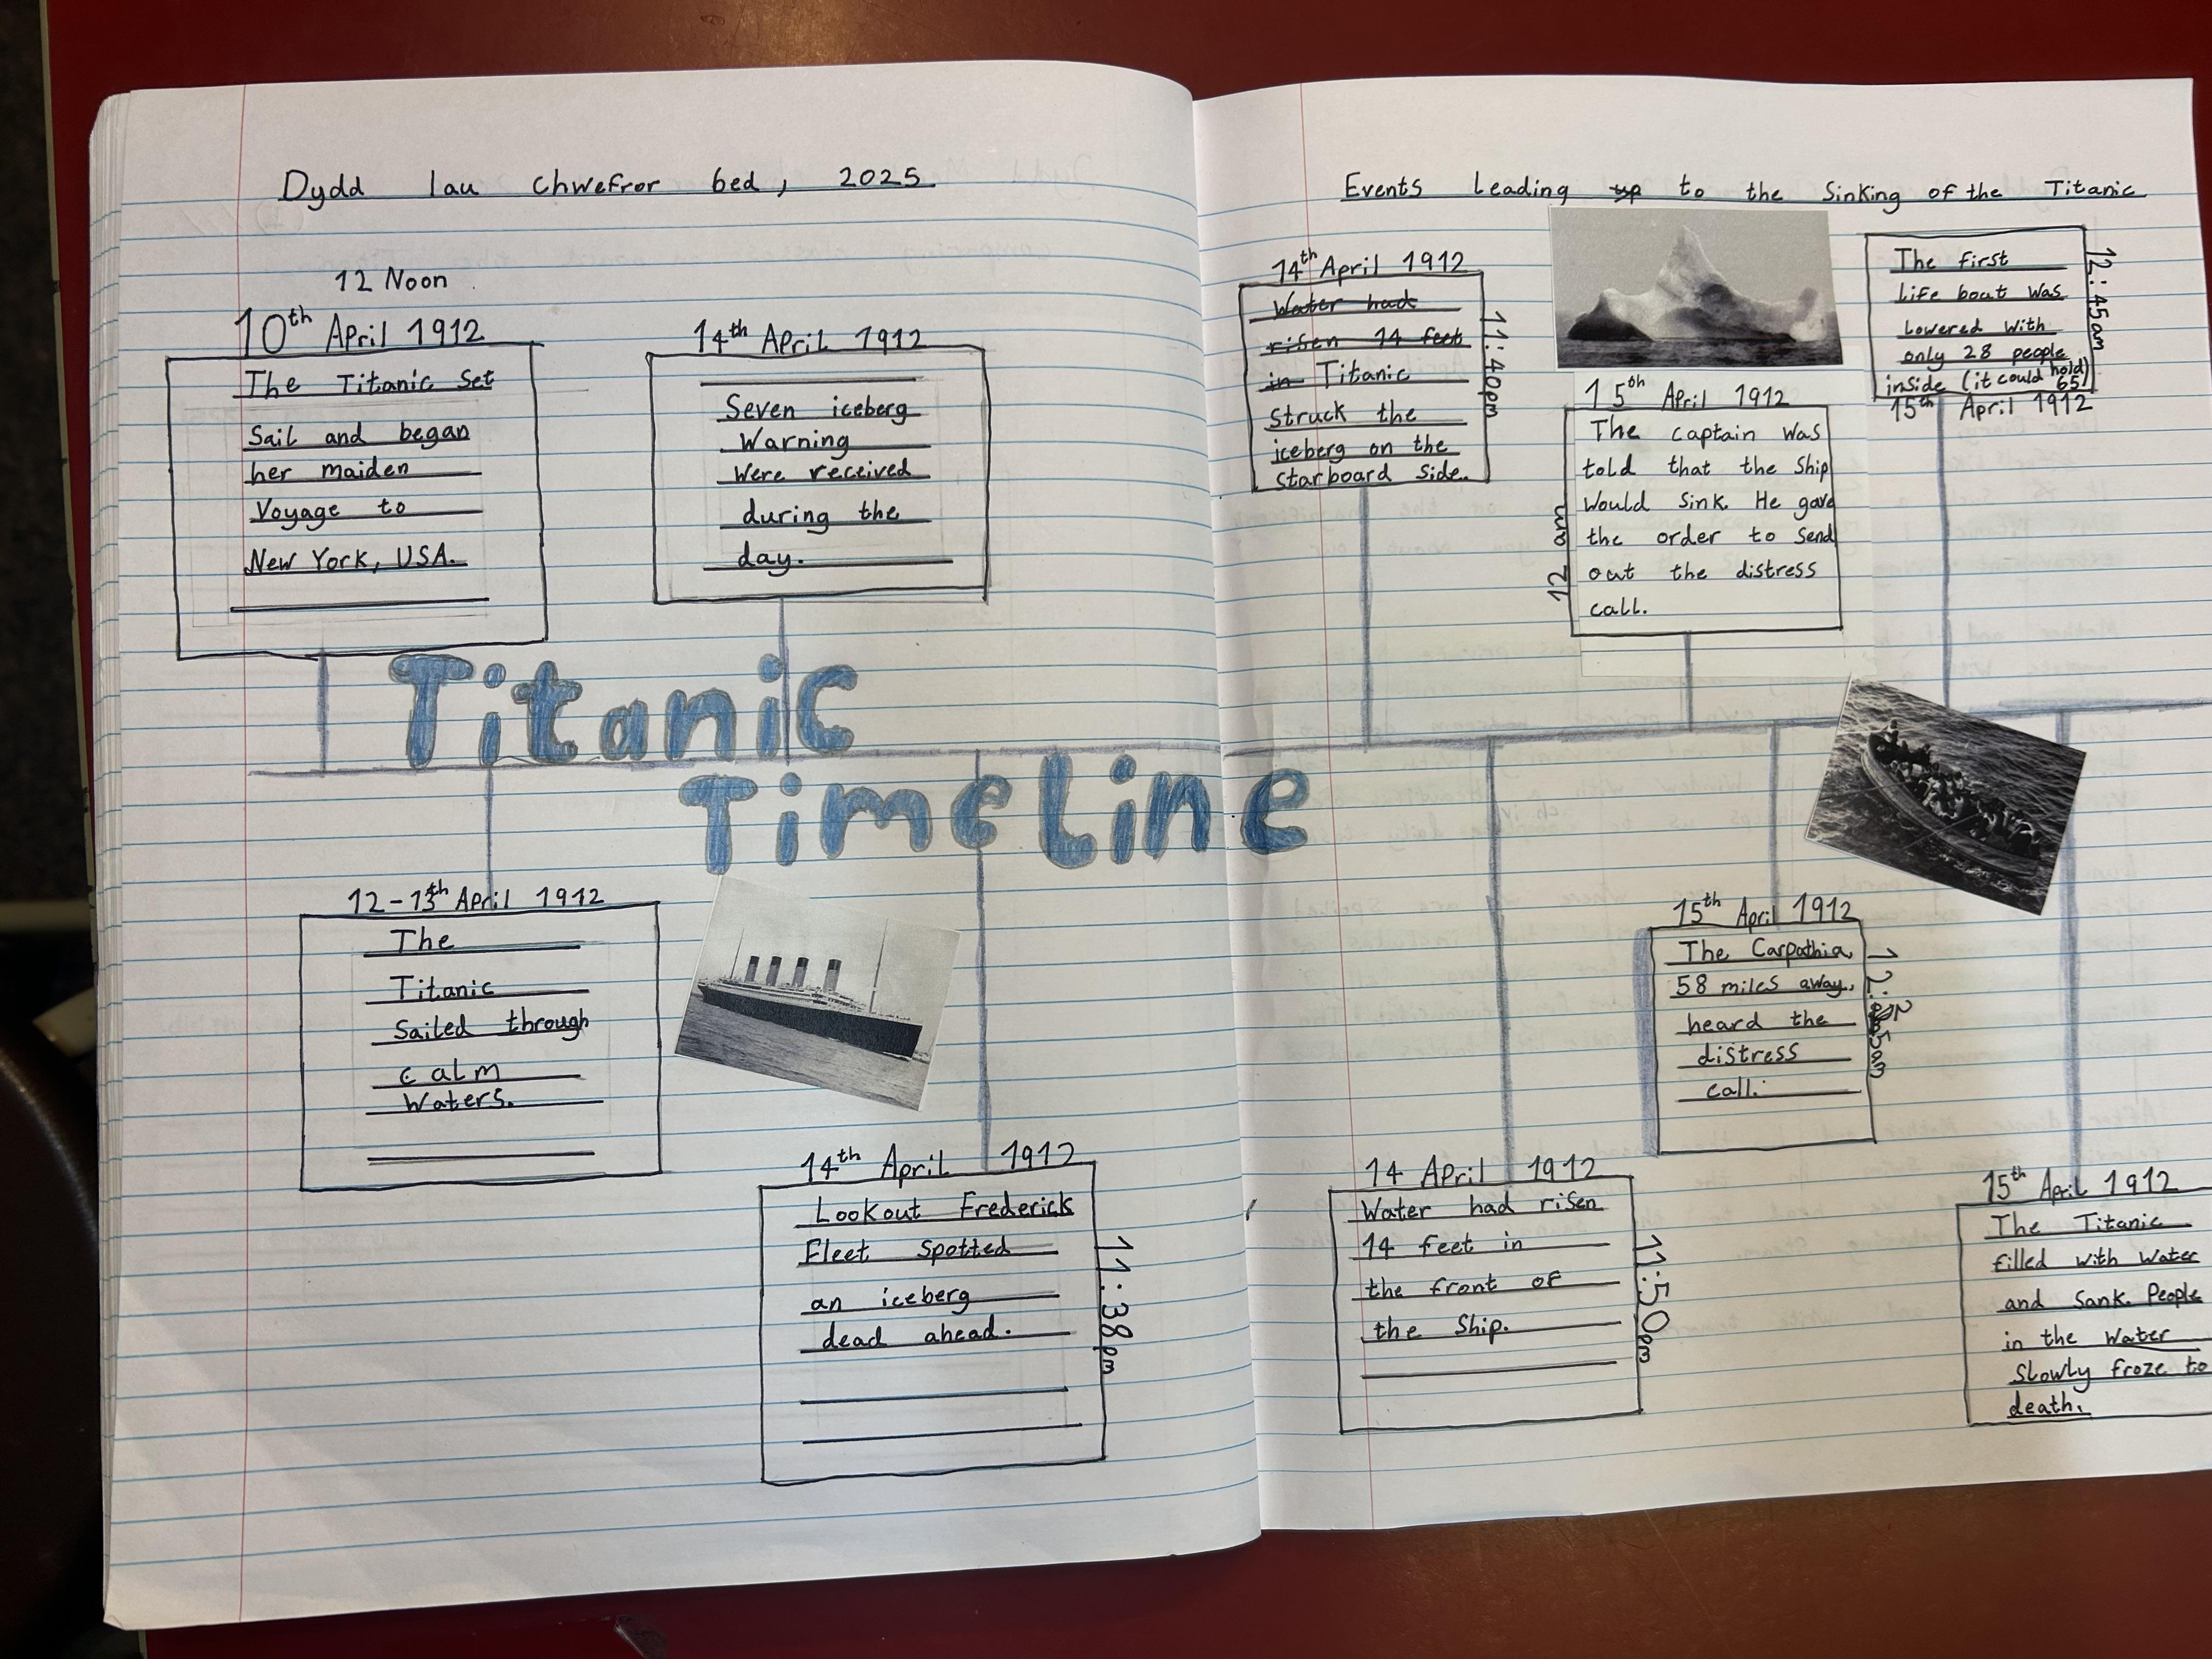 Dydd Iau Chwefror 6ed, 2025
12 Noon
10th April 1912
The Titanic Set
Sail and began
her maiden
Voyage to
New York, USA.
14th April 1912
Seven iceberg
Warning
Were received
during the
day.
Titanic
Timeline
12-13th April 1912
The
Titanic
Sailed through
calm
Waters.
14th April 1912
Lookout Frederick
Fleet Spotted
an iceberg
dead ahead.
11:38pm
Events Leading up to the Sinking of the Titanic
14th April 1912
Water had
risen 14 feet
in Titanic
Struck the
iceberg on the
Starboard Side.
11:40pm
15th April 1912
The captain was
told that the Ship
Would Sink. He gave
the order to Send
out the distress
call.
12 am
The first
Life boat was
Lowered with
only 28 people
inside (it could hold
65)
12:45am
15th April 1912
14 April 1912
Water had risen
14 feet in
the front of
the Ship.
11:50pm
15th April 1912
The Carpathia,
58 miles away,
heard the
distress
call.
15th April 1912
The Titanic
filled with Water
and Sank. People
in the Water
Slowly froze to
death.